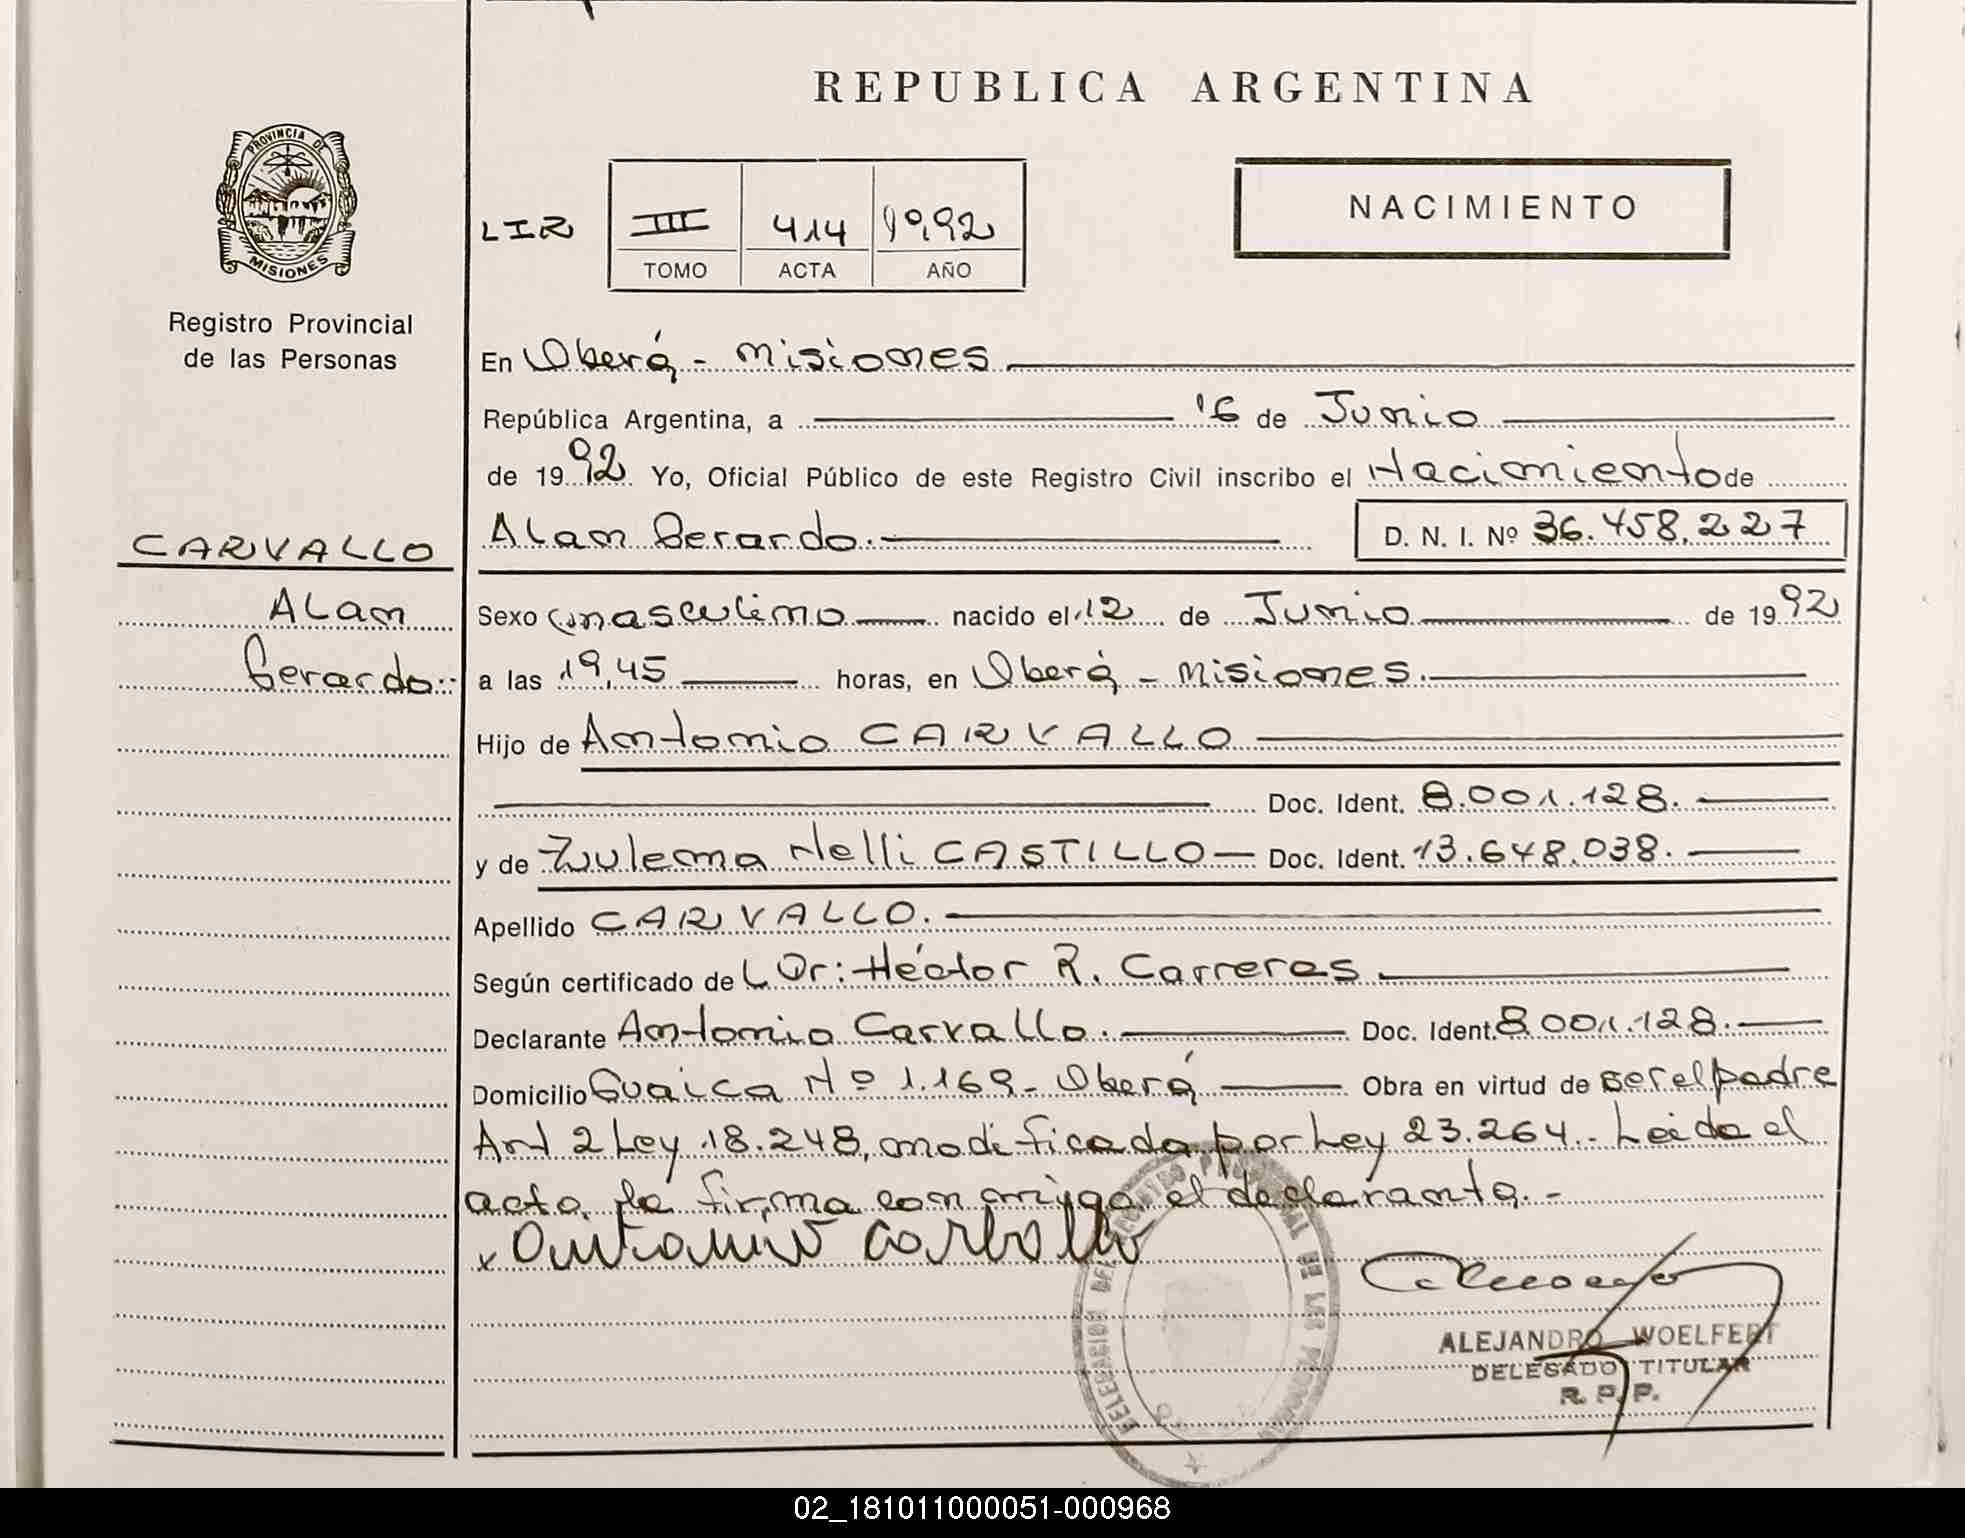 REPUBLICA ARGENTINA
PROVINCIA DE
MISIONES
Registro Provincial
de las Personas
NACIMIENTO
LIR III 414 1992
TOMO ACTA AÑO
En Oberá - Misiones
República Argentina, a 16 de Junio
de 1992. Yo, Oficial Público de este Registro Civil inscribo el Nacimiento de
CARVALLO
Alan
Gerardo.-
Alan Gerardo.- D. N. I. Nº 36.458.227
Sexo masculino nacido el 12 de Junio de 1992
a las 19,45 horas, en Oberá - Misiones.
Hijo de Antonio CARVALLO
Doc. Ident. 8.001.128.
y de Zulema Nelli CASTILLO - Doc. Ident. 13.648.038.
Apellido CARVALLO.
Según certificado de L Dr: Héctor R. Carreras.
Declarante Antonio Carvallo. Doc. Ident. 8.001.128.
Domicilio Guaica Nº 1.169 - Oberá Obra en virtud de ser el padre
Art 2 Ley 18.248, modificada por Ley 23.264.- Leida el
acta, la firma conmigo el declarante.-
x Antonio Carballo
ALEJANDRO WOELFERT
DELEGADO TITULAR
R. P. P.
02_181011000051-000968